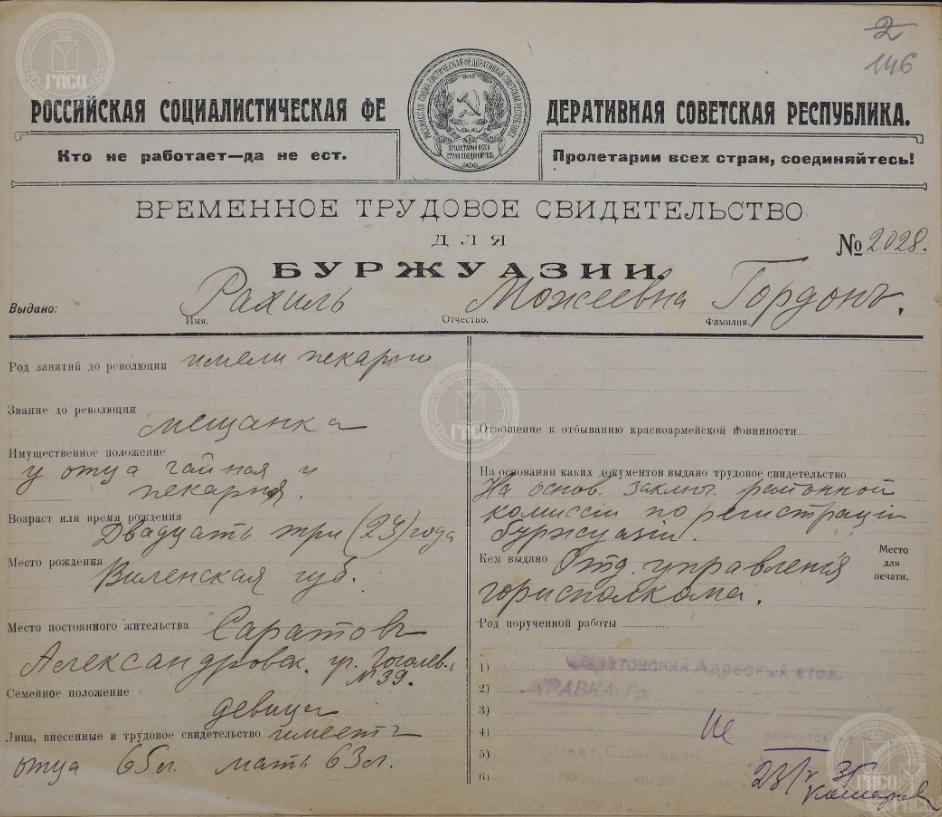 2
146
РОССИЙСКАЯ СОЦИАЛИСТИЧЕСКАЯ ФЕДЕРАТИВНАЯ СОВЕТСКАЯ РЕСПУБЛИКА.
Кто не работает—да не ест.
ПРОЛЕТАРИИ ВСЕХ СТРАН СОЕДИНЯЙТЕСЬ
Пролетарии всех стран, соединяйтесь!
ВРЕМЕННОЕ ТРУДОВОЕ СВИДЕТЕЛЬСТВО
ДЛЯ
№ 2028.
БУРЖУАЗИИ.
Выдано: Рахиль Можеевна Гордонъ,
Имя. Отчество. Фамилия.
Род занятий до революции имели пекарню
Звание до революции
мещанка
Имущественное положение
у отца чайная и
пекарня.
Возраст или время рождения
Двадцать три (23) года
Место рождения
Виленская губ.
Место постоянного жительства Саратовъ
Александровск. уг. Гоголев.
№ 39.
Семейное положение
девица
Лица, внесенные в трудовое свидетельство имеетъ
отца 65 л. мать 63 л.
Отношение к отбыванию красноармейской повинности
На основании каких документов выдано трудовое свидетельство
На основ. заключ. районной
комиссіи по регистраціи
буржуазіи.
Кем выдано Отд. управленія
горисполкома.
Место
для
печати.
Род порученной работы
1)
Саратовский Адресный стол.
2)
СПРАВКА: Гр.
3)
4)
Не значится
5)
6)
23/V 35
ГАСО